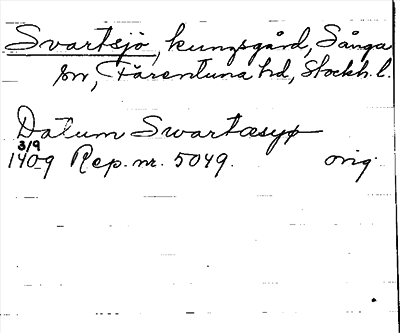 Svartsjö, kungsgård, Sånga
sn, Färentuna hd, Stockh. l.
Datum Swartæsyø
3/9
1409 Rep. nr. 5049. orig.